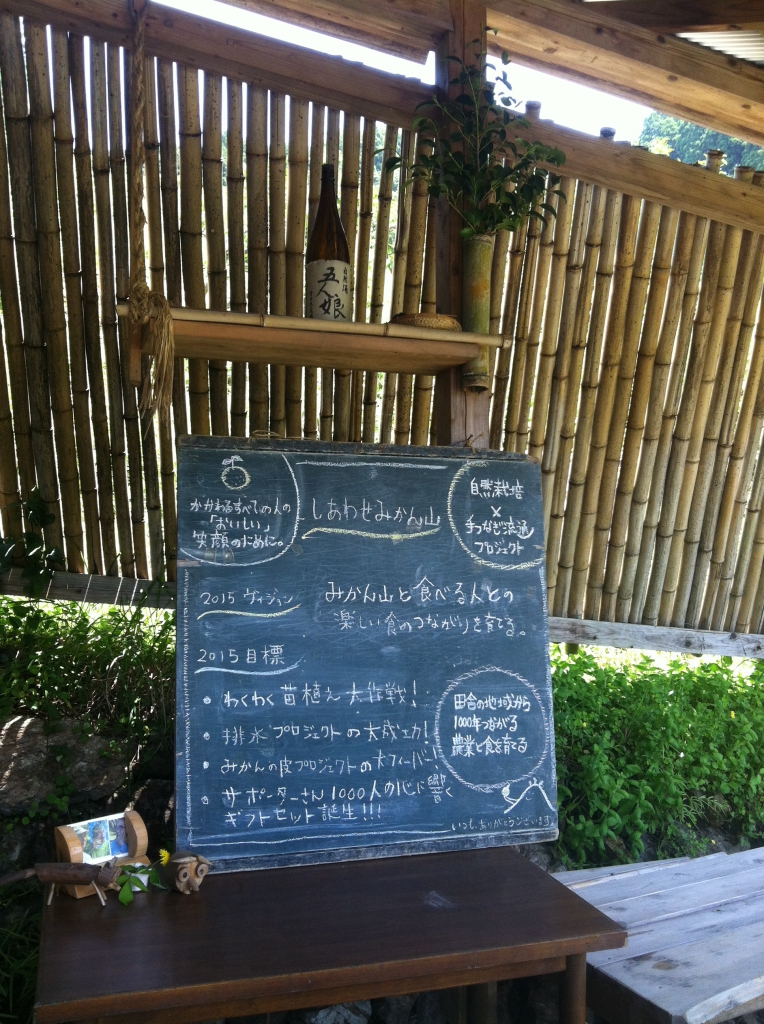 自然酒
五人娘
かかわるすべての人の
「おいしい」
笑顔のために。
しあわせみかん山
自然栽培
×
手つなぎ流通
プロジェクト
2015 ヴィジョン
みかん山と食べる人との
楽しい食のつながりを育てる。
2015目標
• わくわく苗植え大作戦!
• 排水プロジェクトの大成功!
• みかんの皮プロジェクトの大フィーバー!
• サポーターさん1000人の心に響く
ギフトセット誕生!!!
田舎の地域から
1000年つながる
農業と食を育てる
いつも、ありがとうございます。